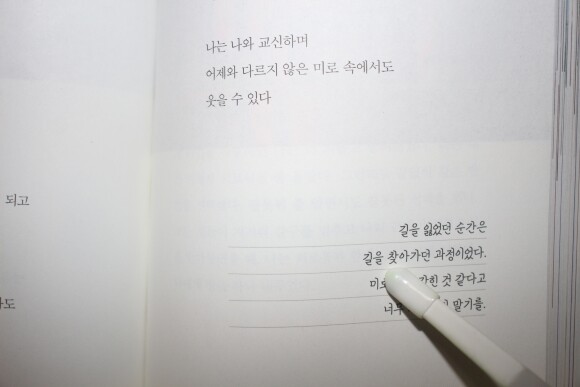 되고
도
나는 나와 교신하며
어제와 다르지 않은 미로 속에서도
웃을 수 있다
길을 잃었던 순간은
길을 찾아가던 과정이었다.
것 같다고
말기를.